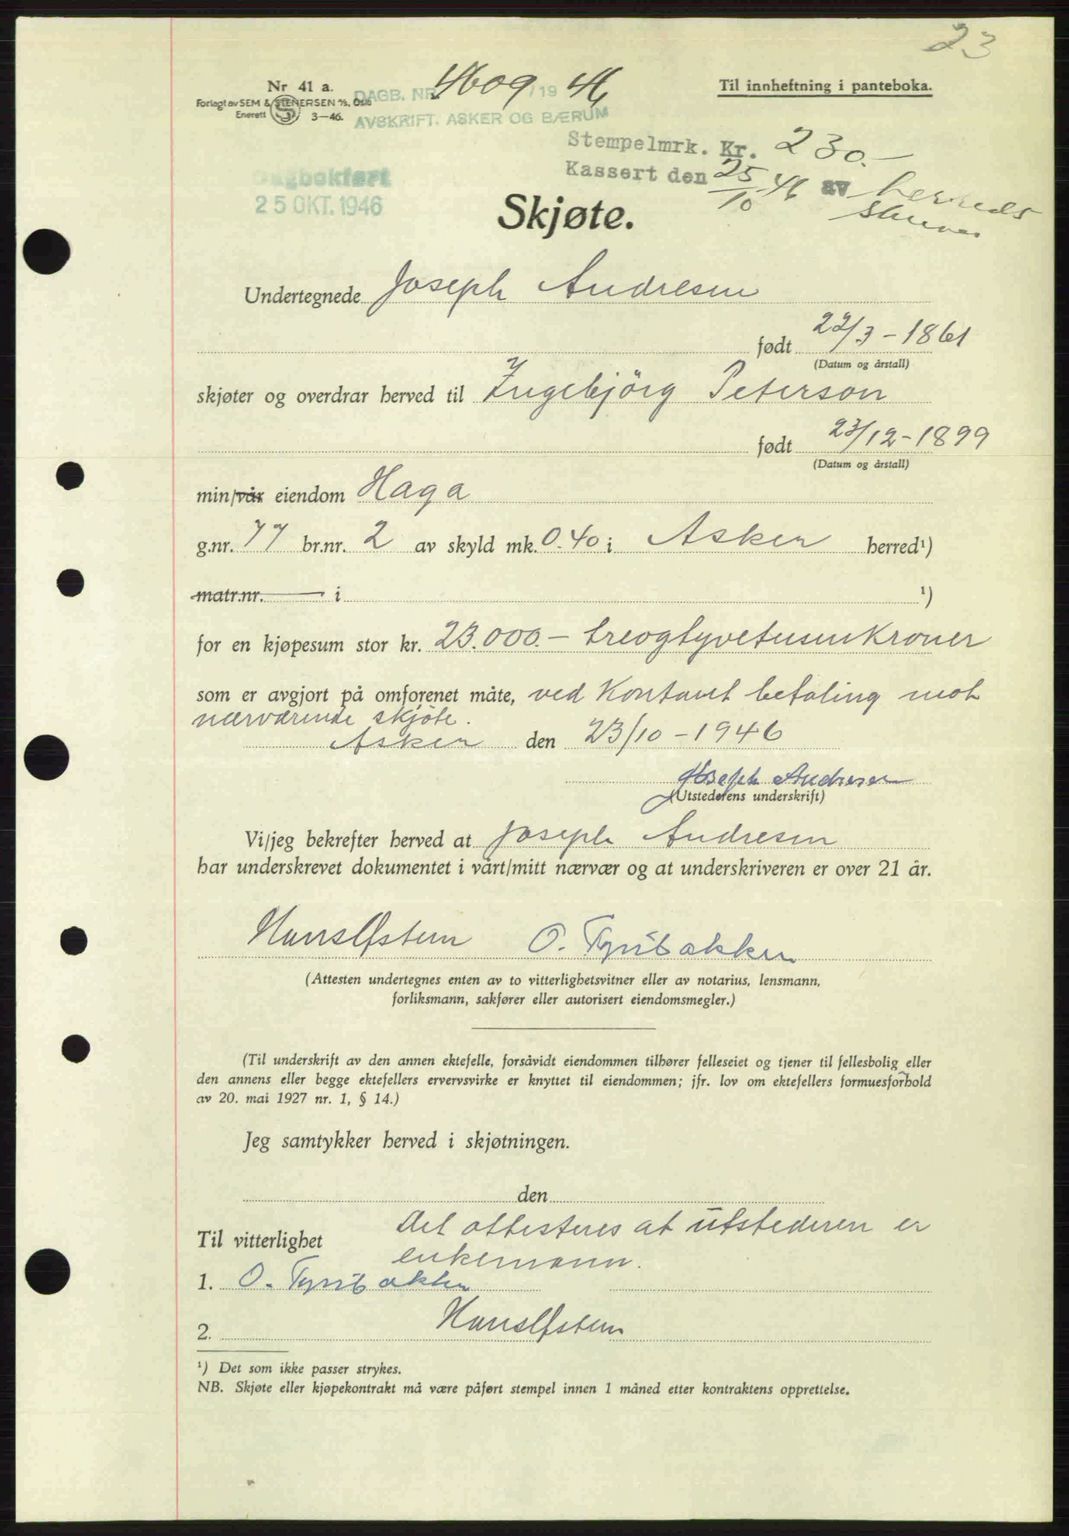 23
Nr 41 a.
Forlagt av SEM & STENERSEN A/S, Oslo
Enerett 3-46.
DAGB. NR. 4609 / 19 46
AVSKRIFT. ASKER OG BÆRUM
Til innheftning i panteboka.
Stempelmrk. Kr. 230.-
Kassert den 25/10 46 av herreds
Dagbokført
25 OKT. 1946
Skjøte.
Undertegnede Joseph Andresen
født 22/3 - 1861
(Datum og årstall)
skjøter og overdrar herved til Ingebjörg Peterson
født 23/12 - 1899
(Datum og årstall)
min/vår eiendom Haga
g.nr. 77 br.nr. 2 av skyld mk. 0.40 i Asker herred¹)
matr.nr. i ¹)
for en kjøpesum stor kr. 23.000.- treogtyvetusenkroner
som er avgjort på omforenet måte, ved Kontant betaling mot
nærværende skjöte.
Asker den 23/10 - 1946
Joseph Andresen
(Utstederens underskrift)
Vi/jeg bekrefter herved at Joseph Andresen
har underskrevet dokumentet i vårt/mitt nærvær og at underskriveren er over 21 år.
Hans Østern O. Tyribakken
(Attesten undertegnes enten av to vitterlighetsvitner eller av notarius, lensmann,
forliksmann, sakfører eller autorisert eiendomsmegler.)
(Til underskrift av den annen ektefelle, forsåvidt eiendommen tilhører felleseiet og tjener til fellesbolig eller
den annens eller begge ektefellers ervervsvirke er knyttet til eiendommen; jfr. lov om ektefellers formuesforhold
av 20. mai 1927 nr. 1, § 14.)
Jeg samtykker herved i skjøtningen.
den
Det attesteres at utstederen er
Til vitterlighet
enkemann.
1. O. Tyribakken
2. Hans Østern
¹) Det som ikke passer strykes.
NB. Skjøte eller kjøpekontrakt må være påført stempel innen 1 måned etter kontraktens opprettelse.